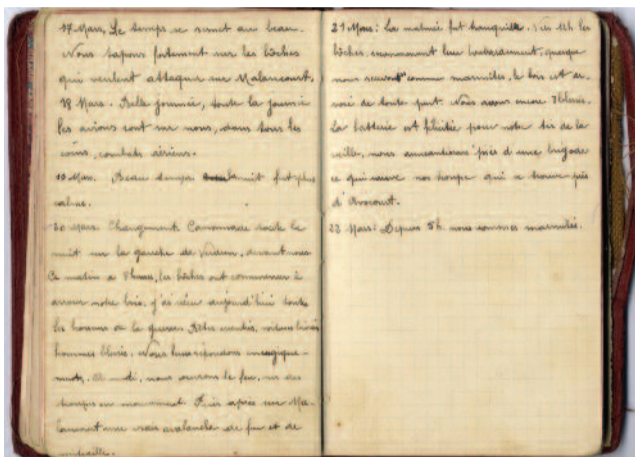 17 Mars. Le temps se remet au beau.
Nous tapons fortement sur les bôches
qui veulent attaquer sur Malancourt.
18 Mars. Belle journée, toute la journée
les avions sont sur nous, dans tous les
coins, combats aériens.
19 Mars. Beau temps la nuit fut plus
calme.
20 Mars. Changement. Canonnade toute la
nuit sur la gauche de Verdun, devant nous.
Ce matin à 8 heures, les bôches ont commencer à
arroser notre bois, j'ai vécu aujourd'hui toutes
les horreurs de la guerre. voitures
hommes blessés. Nous leurs répondons energique-
ments. A midi, nous ouvrons le feu, sur des
troupes en mouvement. Puis après sur Ma-
lancourt une vraie avalanche de feu et de
mitraille.
21 Mars: La matinée fut tranquille. Vers 12h les
bôches, recommencent leur bombardement, quesque
nous recevons comme marmites, le bois est ar-
rosé de toute part. Nous avons encore 3 blessés.
La batterie est félicitée pour notre tir de la
veille, nous anneantisons près d'une brigade
ce qui sauve nos troupe qui a trouve près
d'Avocourt.
22 Mars: Depuis 5h. nous sommes marmités.